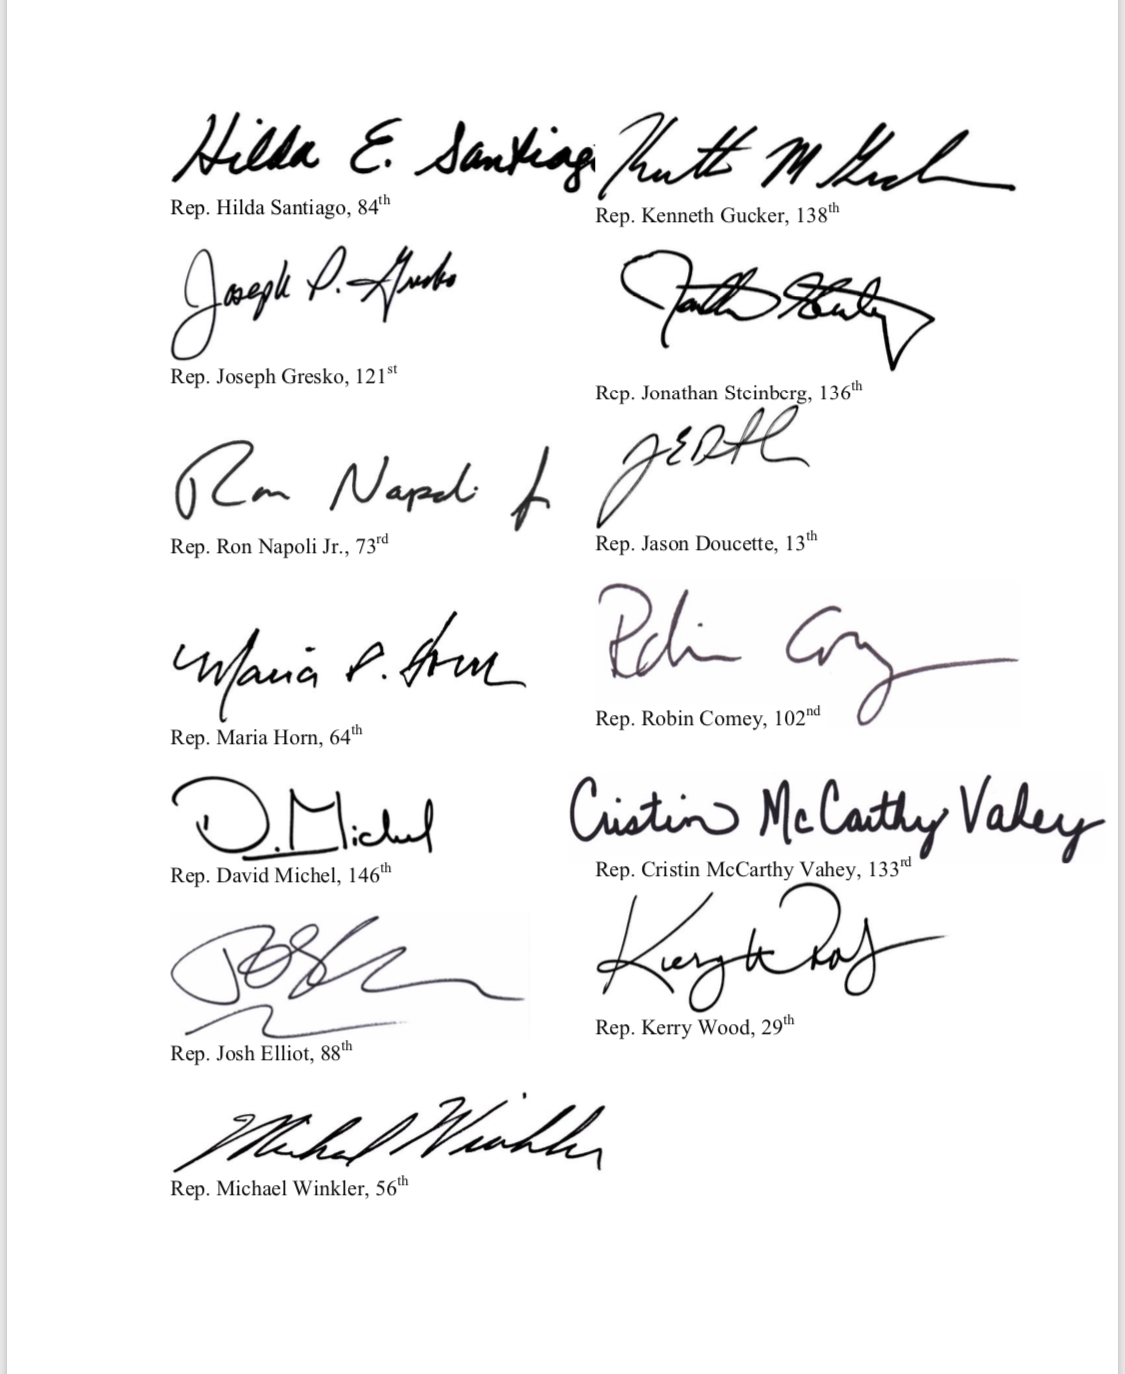 Hilda E. Santiag
Rep. Hilda Santiago, 84th
M
Rep. Kenneth Gucker, 138th
Joseph P. Gresko
Rep. Joseph Gresko, 121st
Rep. Jonathan Steinberg, 136th
Ron Napoli Jr
Rep. Ron Napoli Jr., 73rd
Rep. Jason Doucette, 13th
Maria P. Horn
Rep. Maria Horn, 64th
Robin Comey
Rep. Robin Comey, 102nd
D. Michel
Rep. David Michel, 146th
Cristin McCarthy Vahey
Rep. Cristin McCarthy Vahey, 133rd
Rep. Josh Elliot, 88th
Rep. Kerry Wood, 29th
Michael Winkler
Rep. Michael Winkler, 56th